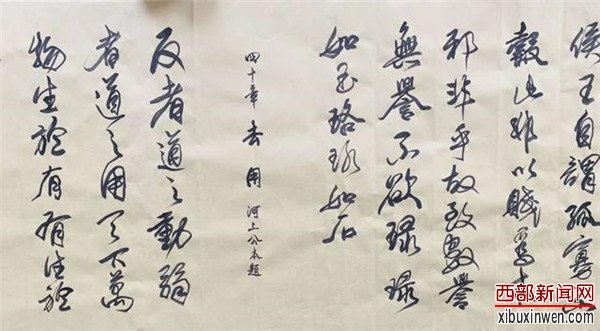 侯王自謂孤寡不
穀此非以賤為本
邪非乎故致數譽
無譽不欲琭琭
如玉珞珞如石
四十章 去用 河上公本題
反者道之動弱
者道之用天下萬
物生於有有生於
西部新闻网
xibuxinwen.com